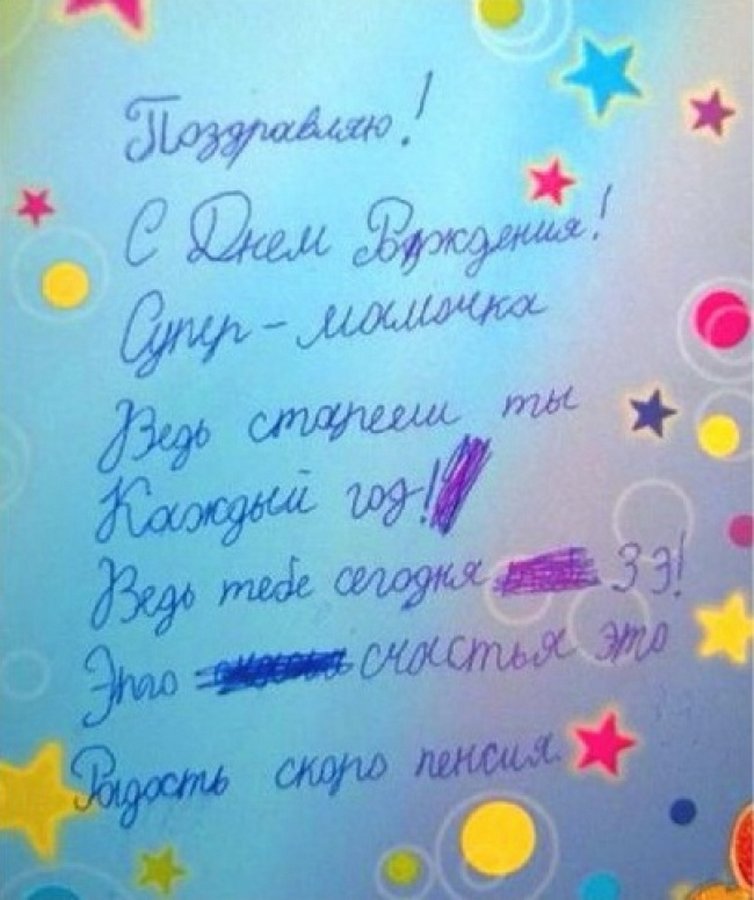 Поздравляю!
С Днем Рождения!
Супер-мамочка
Ведь стареешь ты
Каждый год!
Ведь тебе сегодня 3э!
Это счастья это
Радость скоро пенсия.